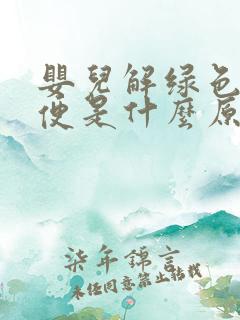 嬰兒解绿色
便是什麼原
柒年錦言
未经同意禁止转载